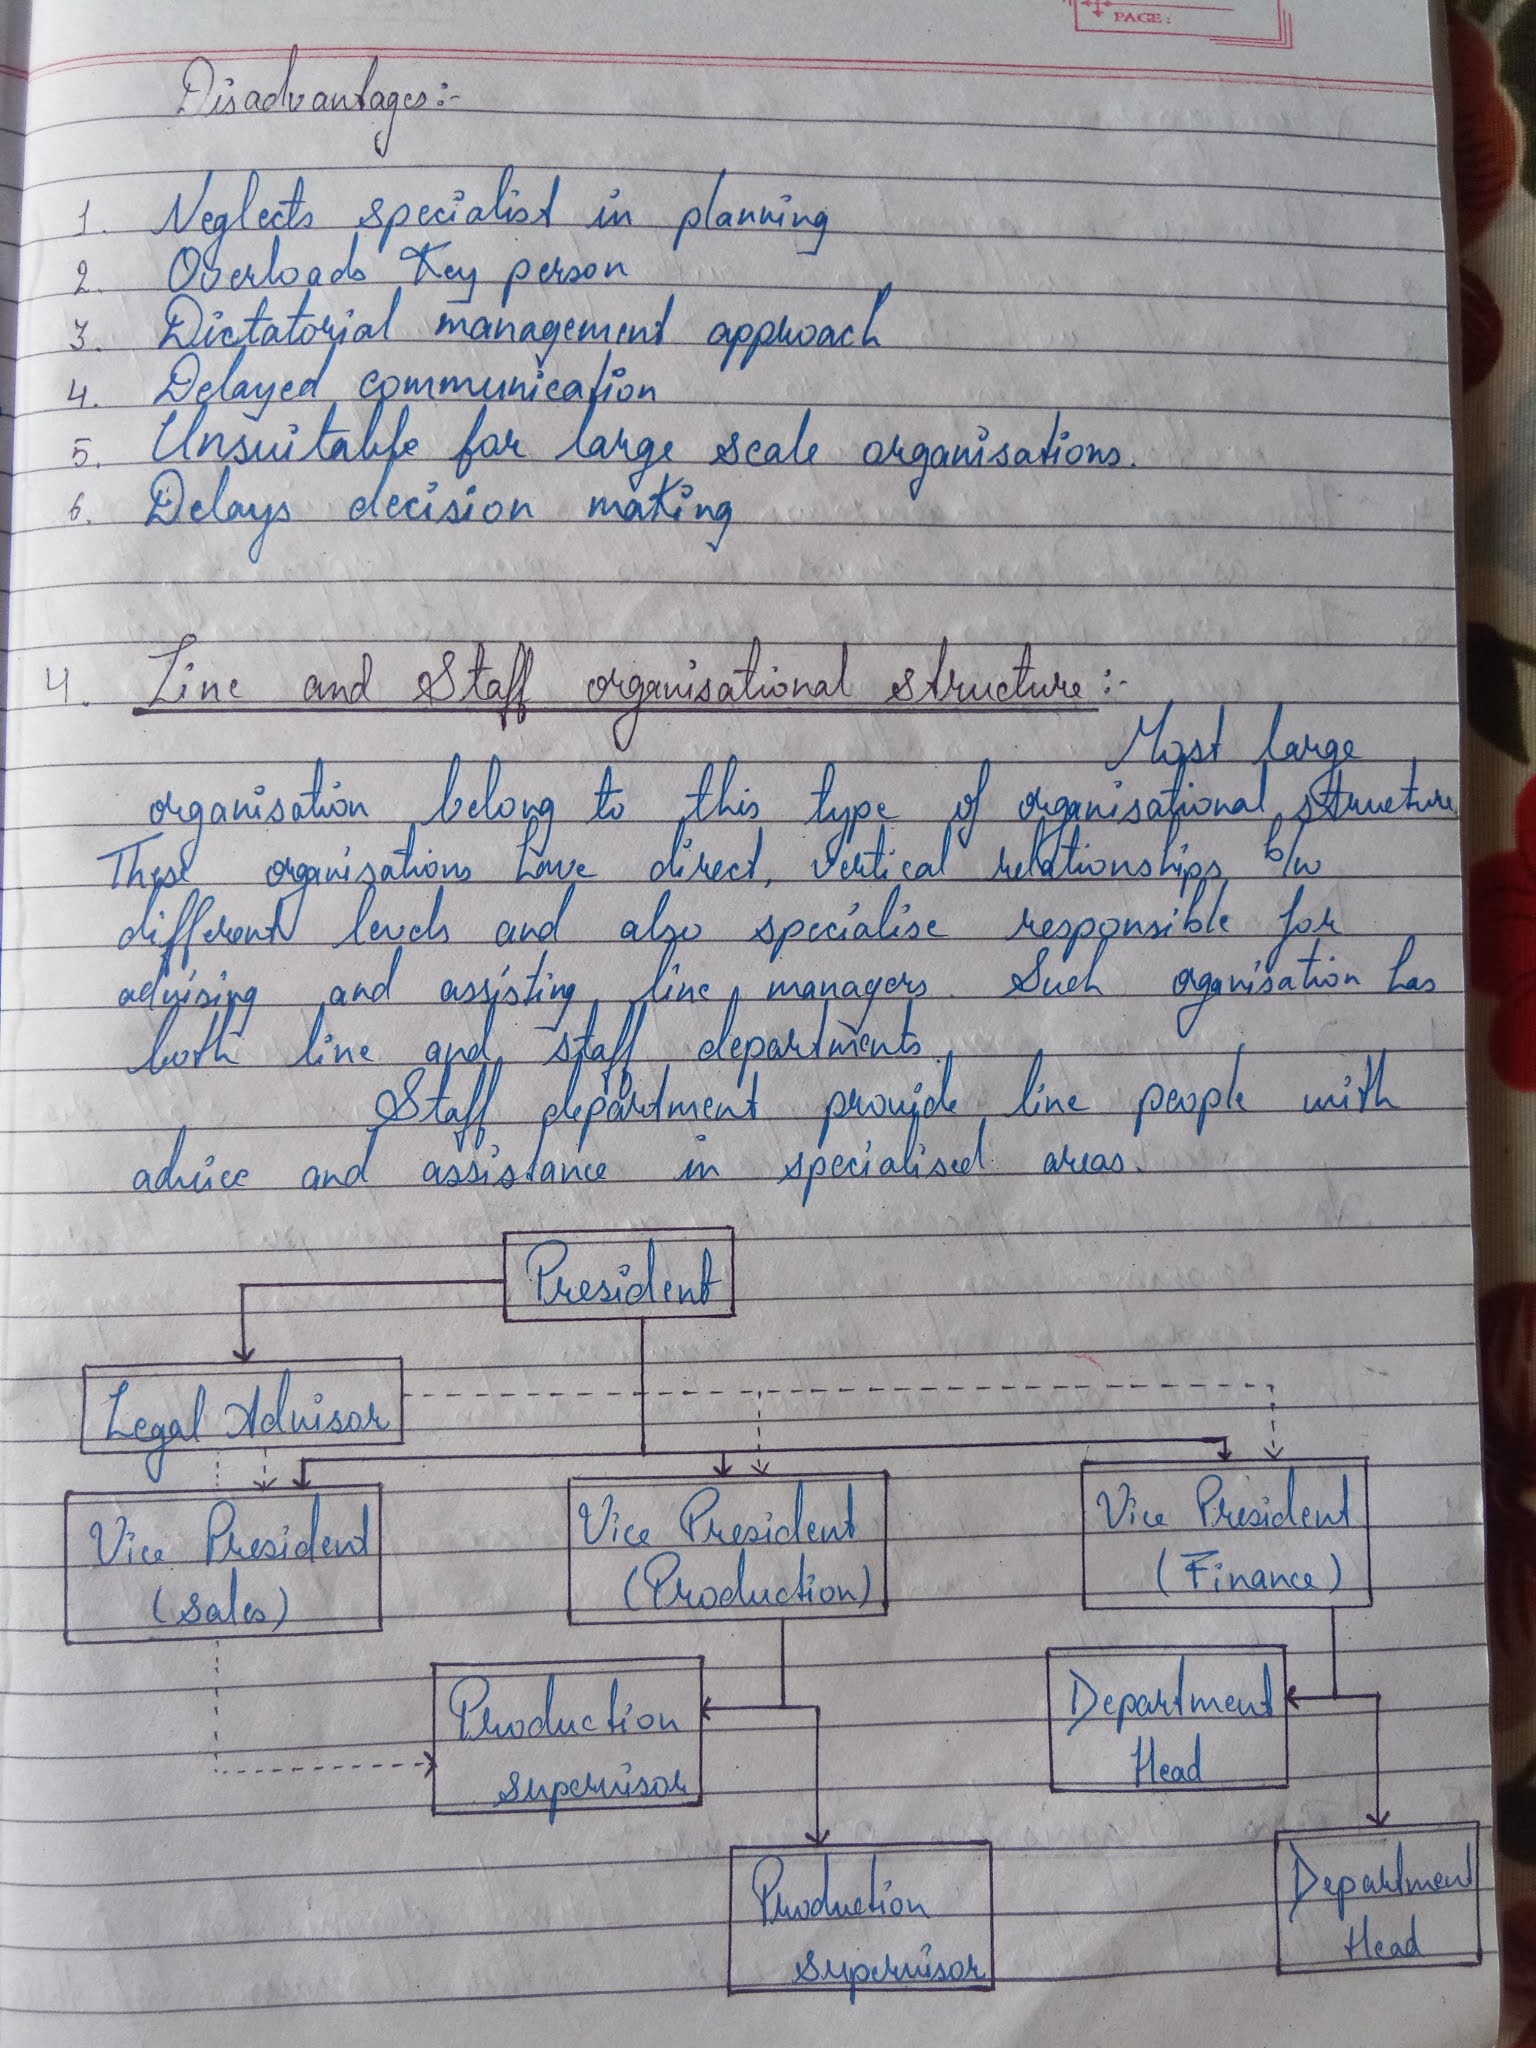 PAGE:
Disadvantages:-
1. Neglects specialist in planning
2. Overloads Key person
3. Dictatorial management approach
4. Delayed communication
5. Unsuitable for large scale organisations.
6. Delays decision making
4. Line and Staff organisational structure:-
Most large
organisation belong to this type of organisational structure
These organisations have direct, vertical relationships b/w
different levels and also specialise responsible for
advising and assisting line managers. Such organisation has
both line and staff departments.
Staff department provide line people with
advice and assistance in specialised areas.
President
Legal Advisor
Vice President
(Sales)
Vice President
(Production)
Vice President
(Finance)
Production
supervisor
Department
Head
Production
supervisor
Department
Head